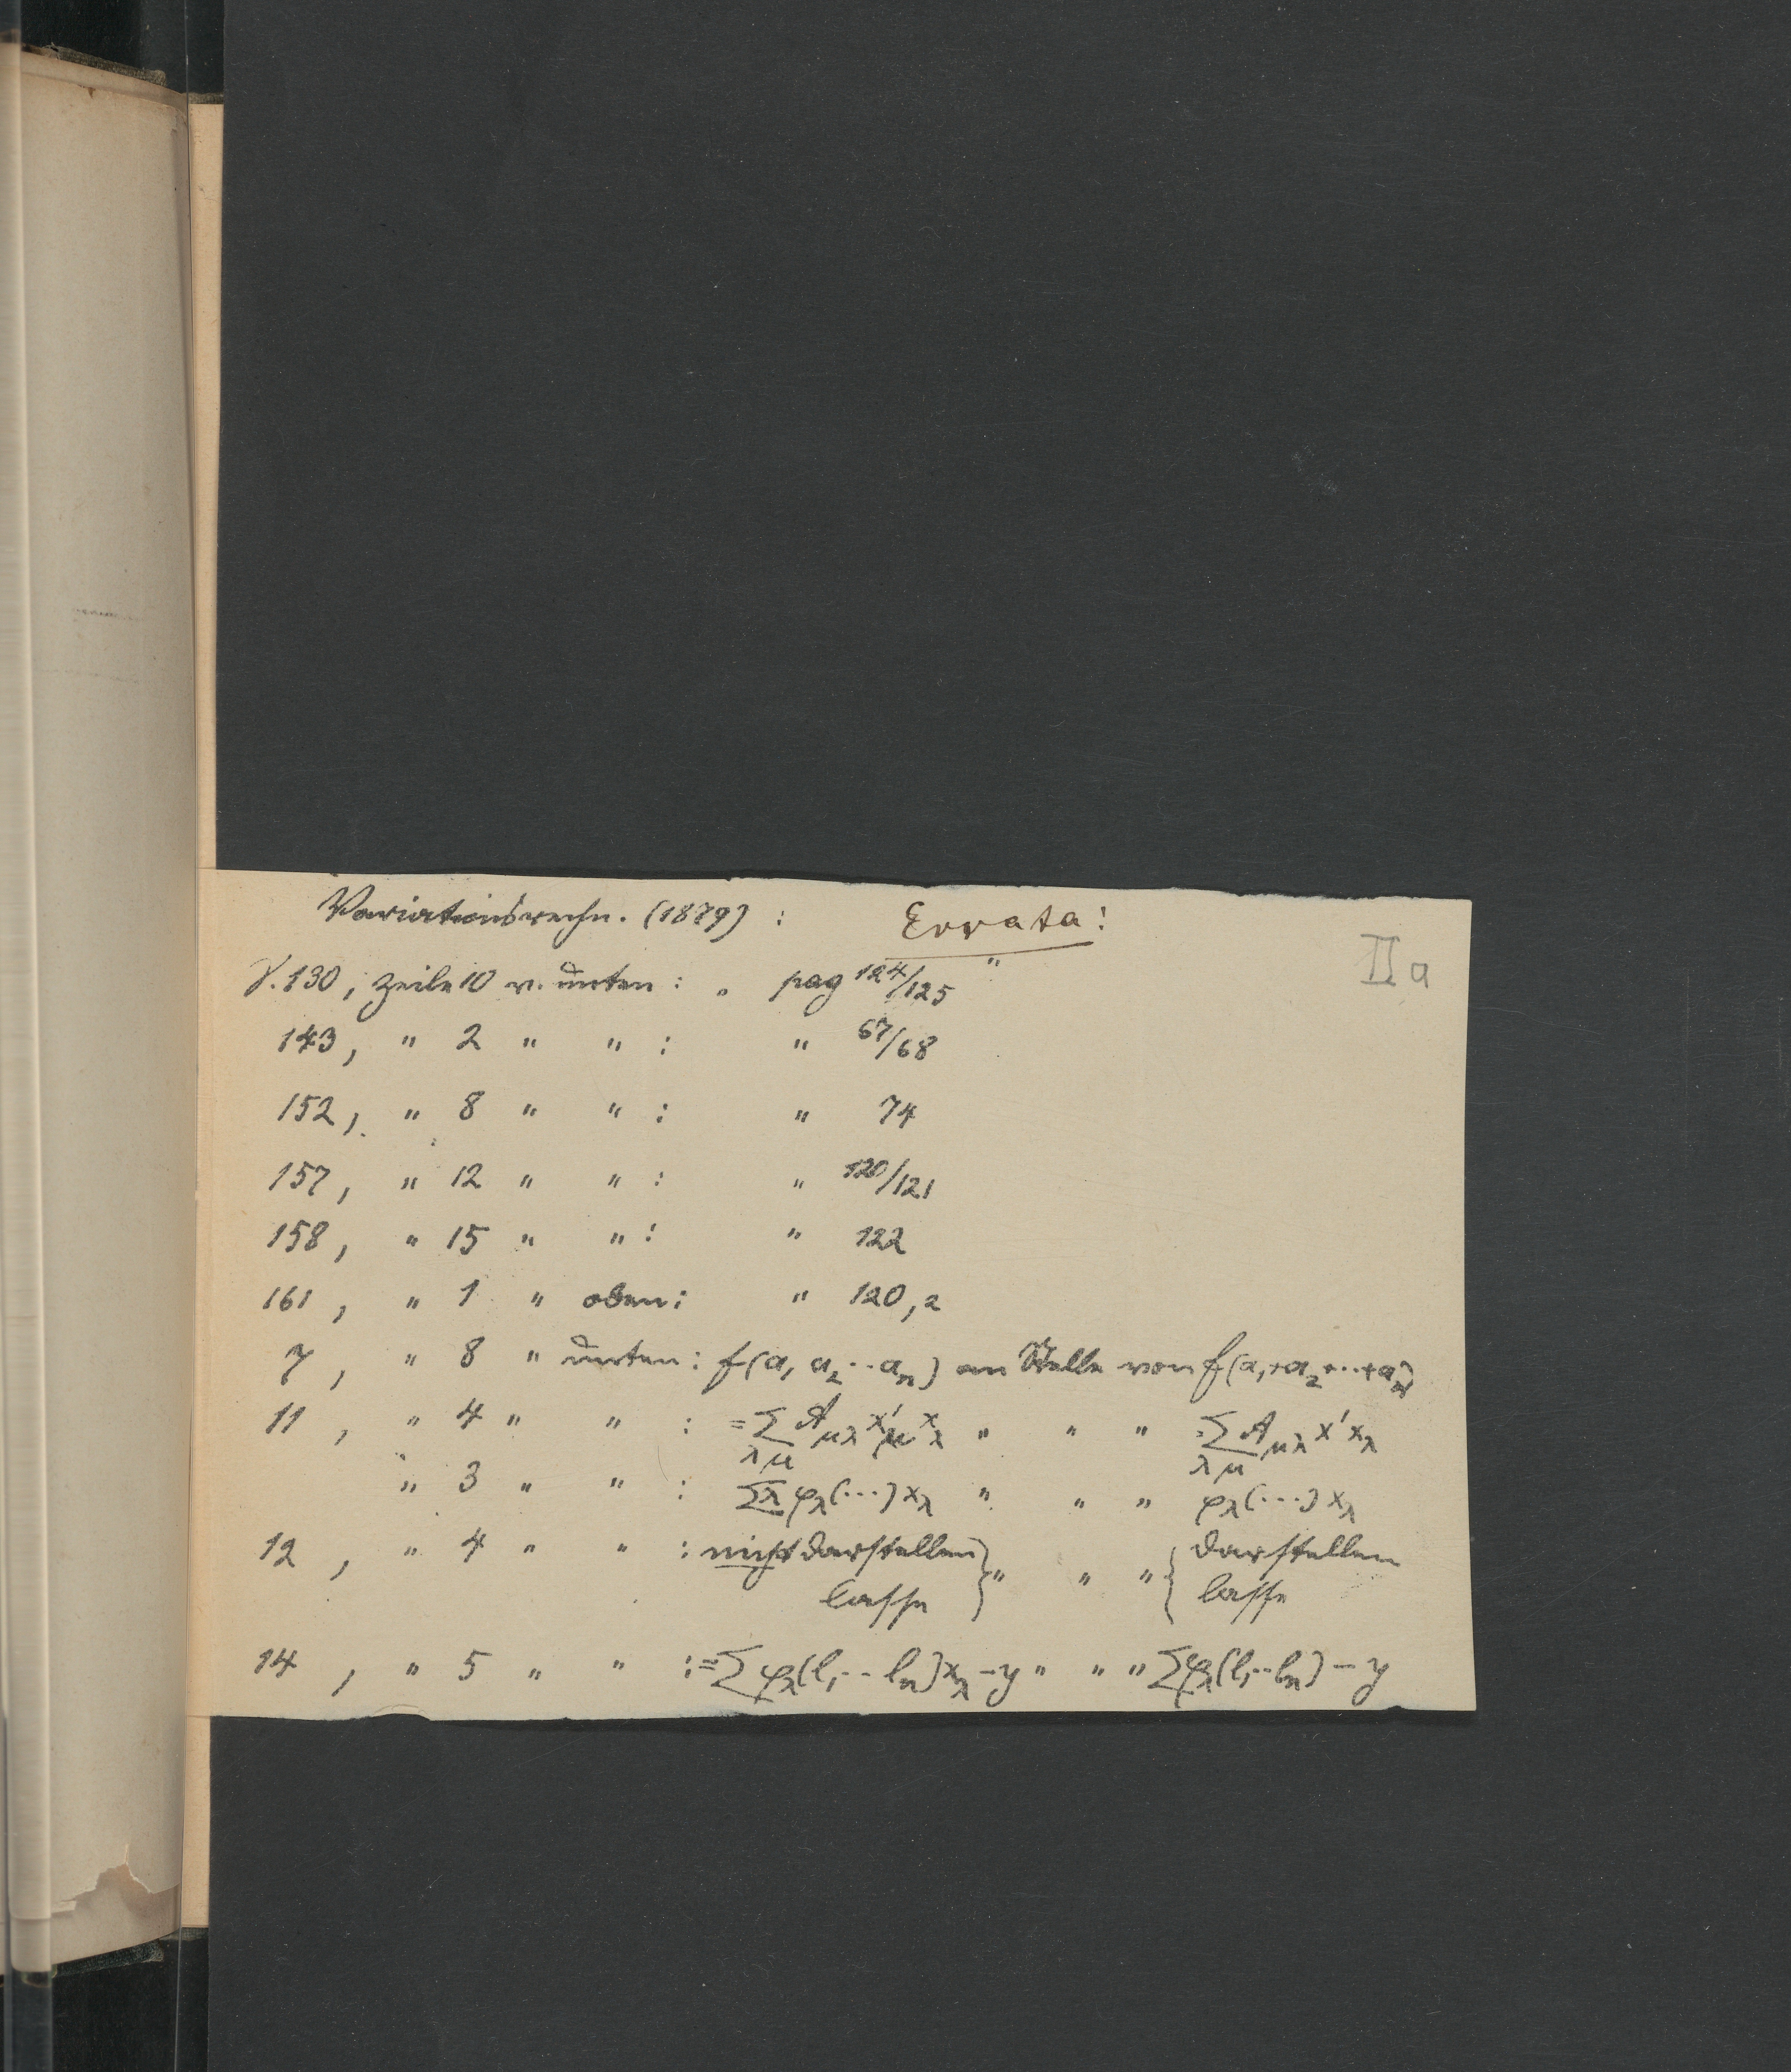 Variationsrechn. (1879) : Errata!
IIa
S. 130, Zeile 10 v. unten : „ pag 124/125 "
143, " 2 " " : " 67/68
152, " 8 " " : " 74
157, " 12 " " : " 120/121
158, " 15 " " : " 122
161, " 1 " oben : " 120,2
7, " 8 " unten : f(a₁ a₂ ·· aₙ) an Stelle von f(a₁+a₂+··+aₙ)
11, " 4 " " : = ∑_{λμ} A_{μλ} x'_μ x_λ " " " = ∑_{λμ} A_{μλ} x' x_λ
" 3 " " : ∑_λ φ_λ(···) x_λ " " " φ_λ(···) x_λ
12, " 4 " " : nicht darstellen } " " " { darstellen
lasse lasse
14, " 5 " " : = ∑ φ_λ(l₁·· lₙ) x_λ – y " " " ∑ φ_λ(l₁·· lₙ) – y